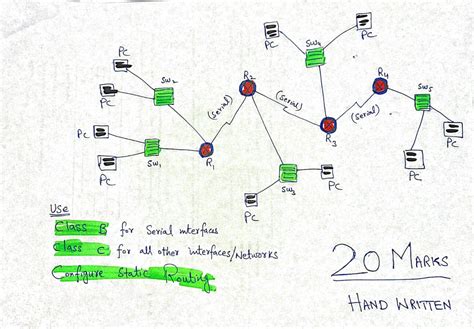 PC
PC
SW4
PC
PC
SW2
R2
R4
SW5
PC
(Serial)
(Serial)
(Serial)
PC
PC
SW1
R1
R3
PC
PC
PC
SW3
PC
PC
Use
Class B for Serial interfaces
Class C for all other interfaces/Networks
Configure Static Routing
20 MARKS
HAND WRITTEN